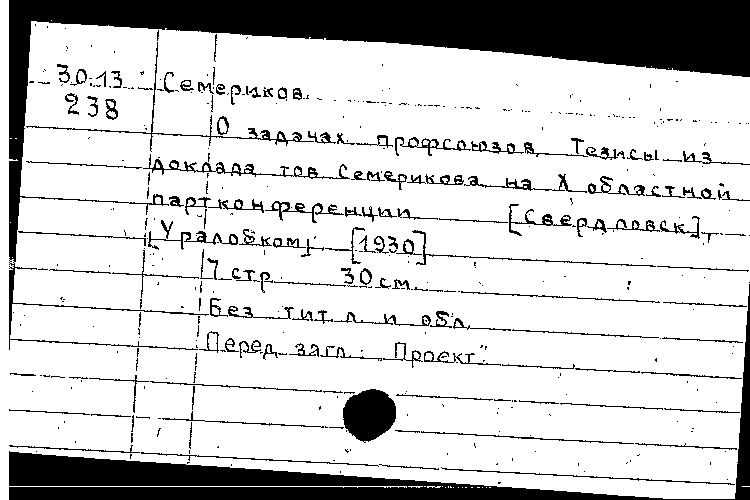 30.13 Семериков.
238
О задачах профсоюзов. Тезисы из
доклада тов. Семерикова на X областной
партконференции. [Свердловск],
[Уралобком] [1930]
7 стр. 30 см.
Без тит. л. и обл.
Перед загл.: Проект."